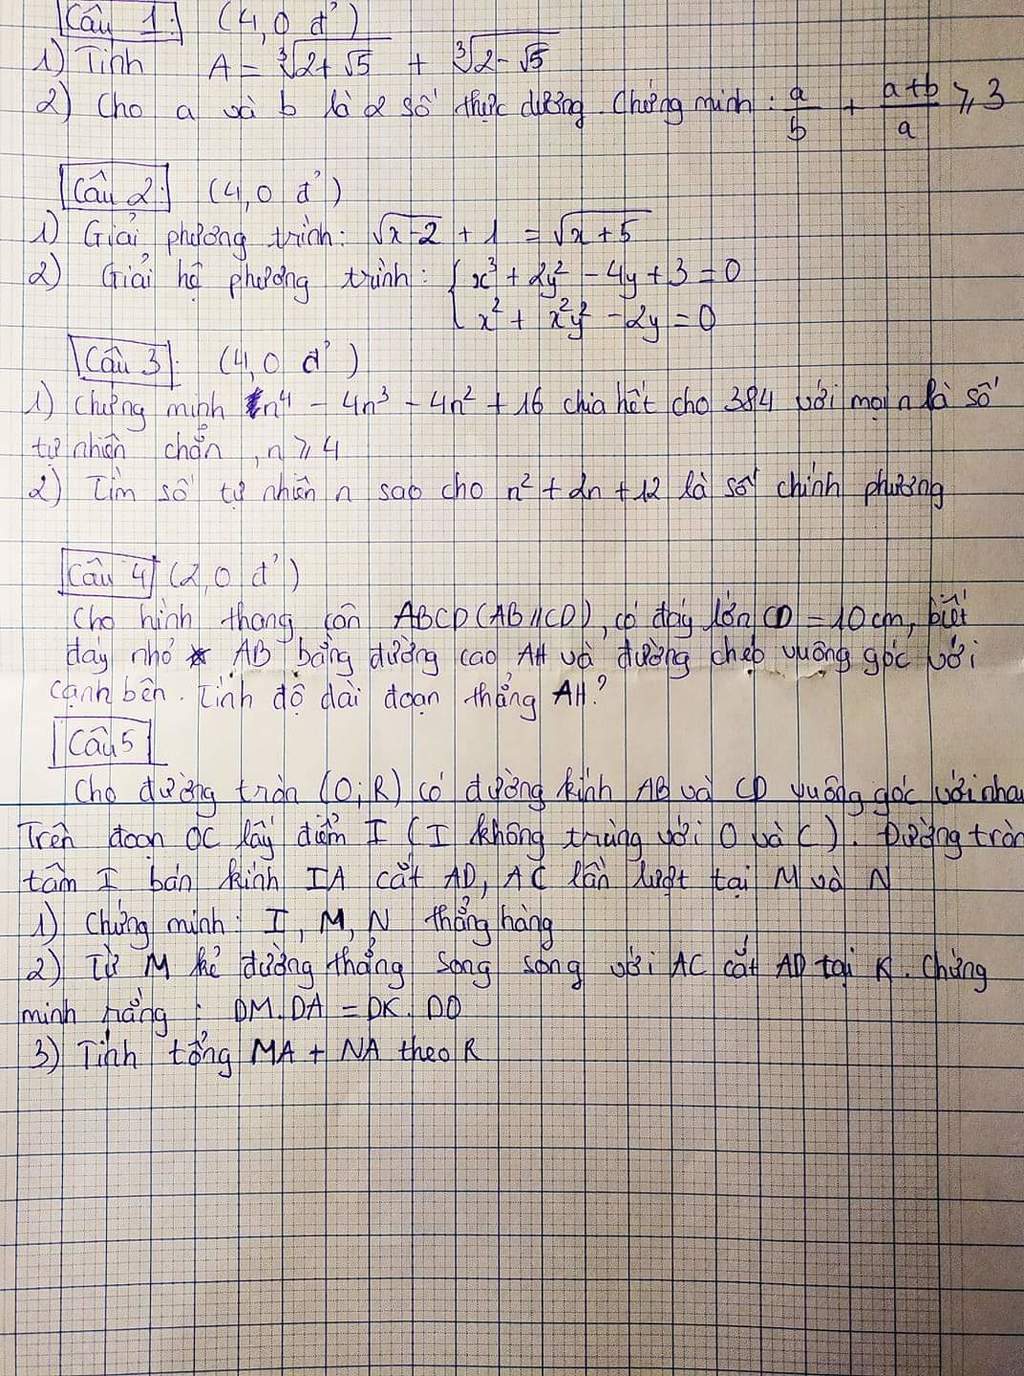 Câu 1: (4,0 đ')
1) Tính A = ∛(2+√5) + ∛(2-√5)
2) Cho a và b là 2 số thực dương. Chứng minh: a/b + (a+b)/a ⩾ 3
Câu 2: (4,0 đ')
1) Giải phương trình: √(x-2) + 1 = √(x+5)
2) Giải hệ phương trình: { x³ + 2y² - 4y + 3 = 0
x² + x²y² - 2y = 0
Câu 3: (4,0 đ')
1) Chứng minh n⁴ - 4n³ - 4n² + 16 chia hết cho 384 với mọi n là số
tự nhiên chẵn, n ⩾ 4
2) Tìm số tự nhiên n sao cho n² + 2n + 12 là số chính phương
Câu 4 (2,0 đ')
Cho hình thang cân ABCD (AB//CD), có đáy lớn CD = 10cm, biết
đáy nhỏ AB bằng đường cao AH và đường chéo vuông góc với
cạnh bên. Tính độ dài đoạn thẳng AH?
Câu 5
Cho đường tròn (O;R) có đường kính AB và CD vuông góc với nhau
Trên đoạn OC lấy điểm I (I không trùng với O và C). Đường tròn
tâm I bán kính IA cắt AD, AC lần lượt tại M và N
1) Chứng minh: I, M, N thẳng hàng
2) Từ M kẻ đường thẳng song song với AC cắt AD tại K. Chứng
minh rằng: DM.DA = DK.DO
3) Tính tổng MA + NA theo R